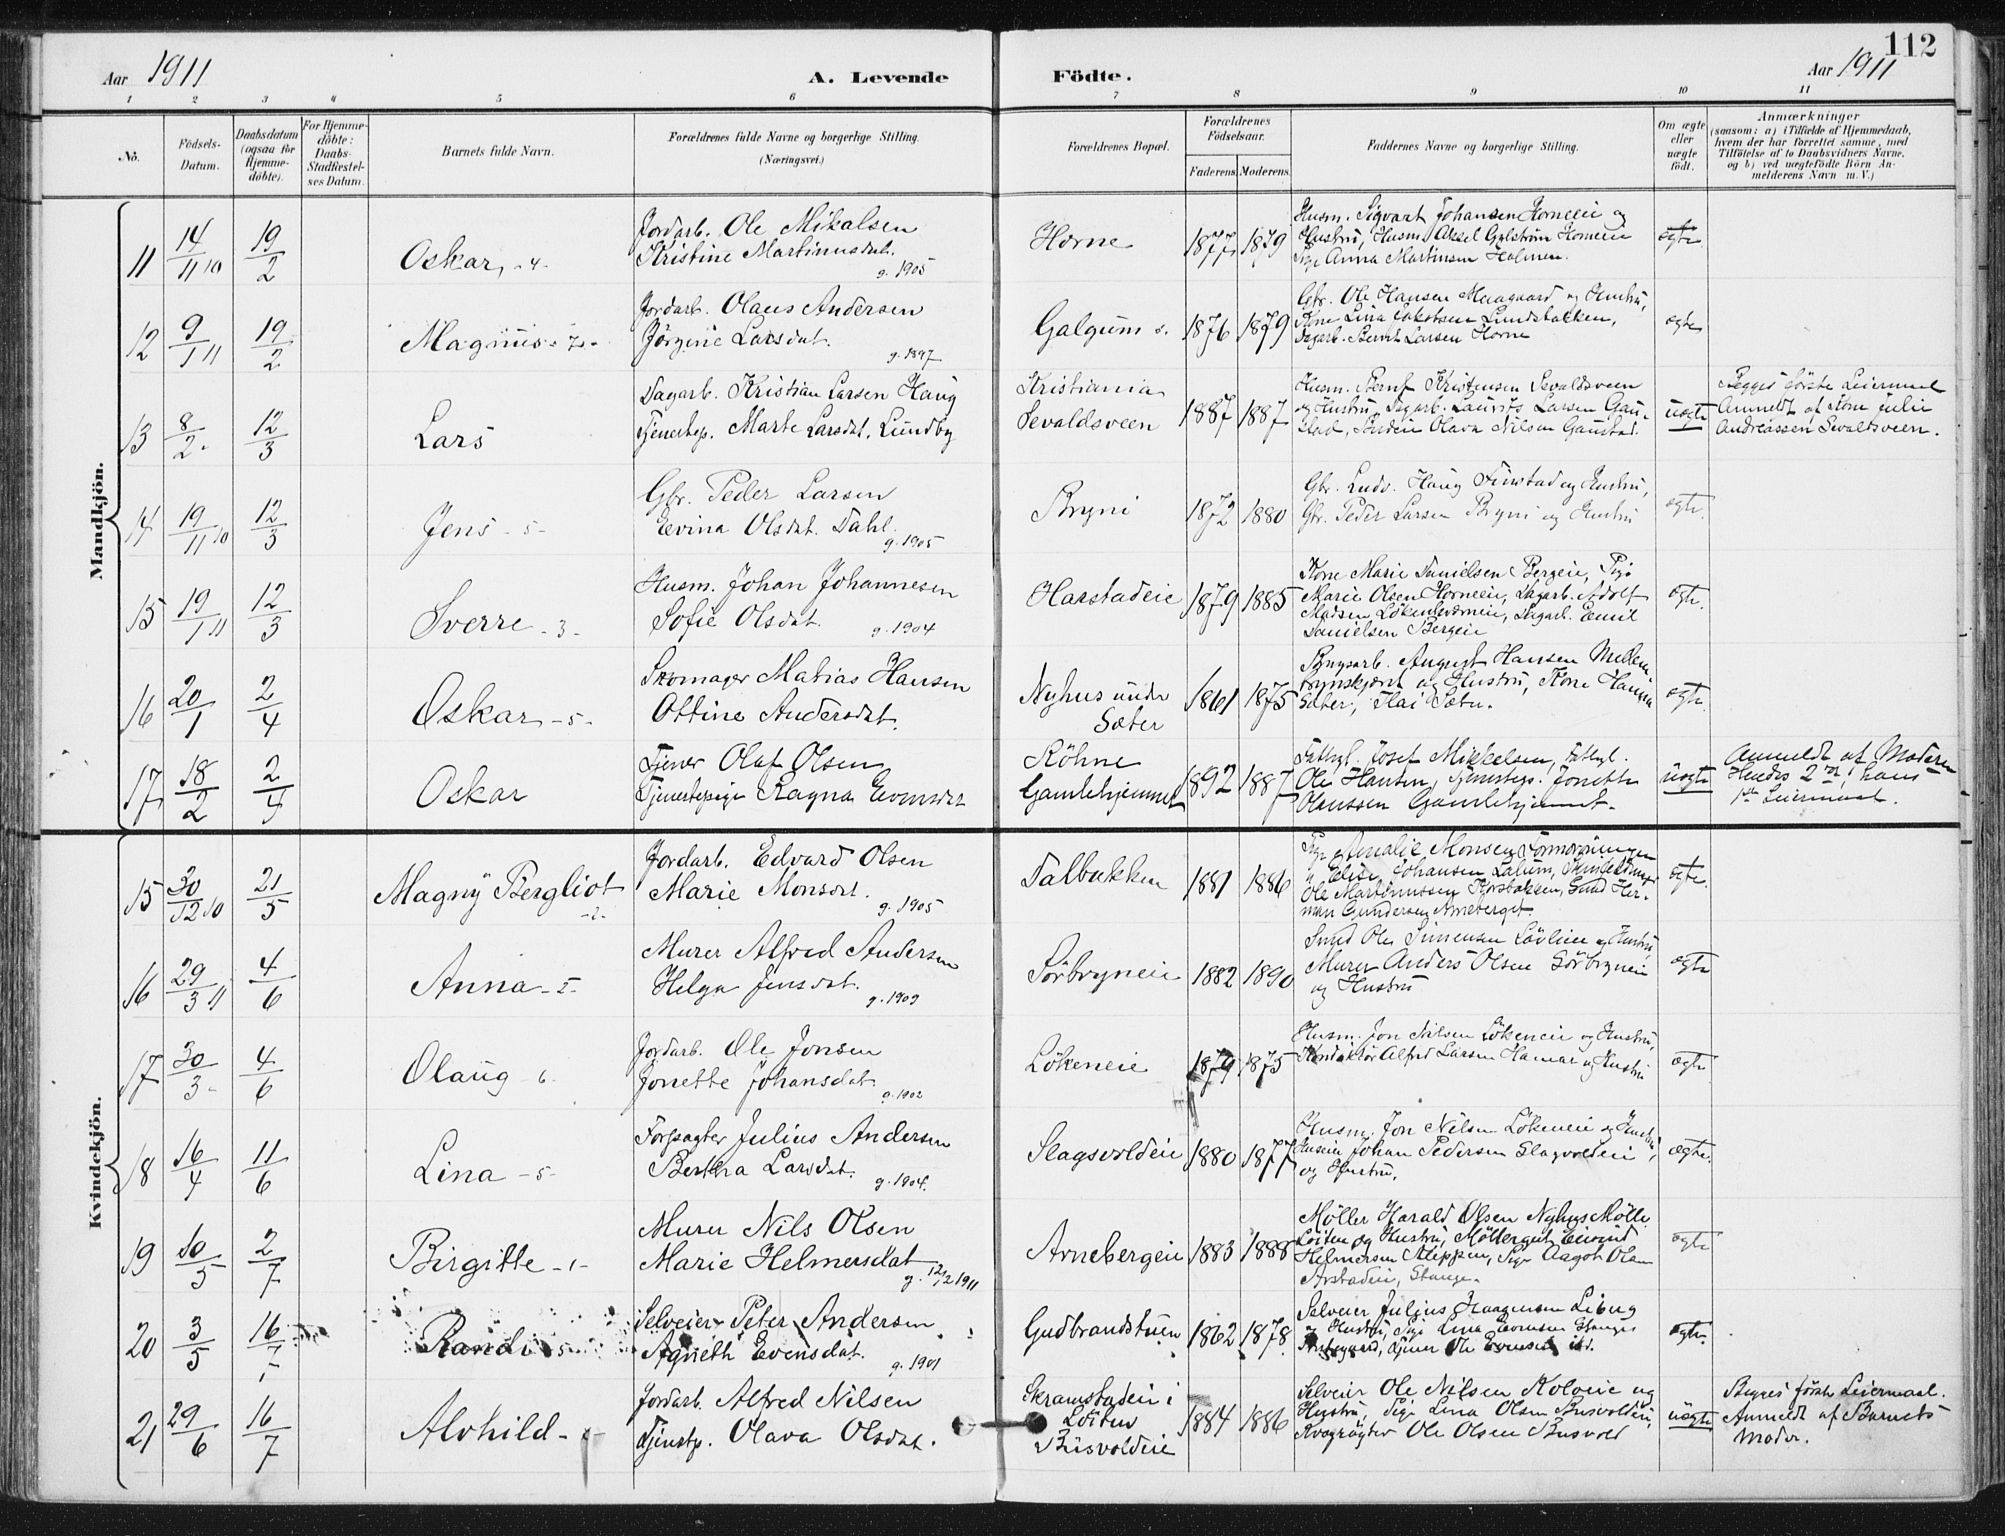 112
Aar 1911
A. Levende
Födte.
Aar 1911
1 2 3 4 5 6 7 8 9 10 11
No.
Födsels-
Datum.
Daabsdatum
(ogsaa for
Hjemme-
döbte).
For Hjemme-
döbte:
Daabs-
Stadfæstel-
ses Datum.
Barnets fulde Navn.
Forældrenes fulde Navne og borgerlige Stilling.
(Næringsvei.)
Forældrenes Bopæl.
Forældrenes
Födselsaar.
Faderens.
Moderens.
Faddernes Navne og borgerlige Stilling.
Om ægte
eller
uægte
födt.
Anmærkninger
(saasom: a) i Tilfælde af Hjemmedaab,
hvem der har forrettet samme, med
Tilföielse af to Daabsvidners Navne,
og b) ved uægtefödte Börn An-
melderens Navn m. V.)
Mandkjön.
11 14/11 10 19/2 Oskar, -4-
Jordarb. Ole Mikalsen
Kristine Martinusdat.
g. 1905
Horne 1877 1879
Husm. Sigvart Johansen Horneeie og
Hustru, Husm. Aksel Gylström Horneeie
Pige Anna Martinsen Holmen.
ægte
12 9/1 11 19/2 Magnus -7-
Jordarb. Olaus Andersen
Jörgine Larsdat.
g. 1897
Galgum s. 1876 1879
Gbr. Ole Hansen Maagaard og Hustru,
Kone Lina Jakobsen Lundsbakken,
Dagarb. Bernt Larsen Horne
ægte
13 8/2 12/3 Lars
Dagarb. Kristian Larsen Haug
Tjenestep. Marte Larsdat. Lundby
Kristiania
Sevaldsveen 1887 1887
Husm. Bernt Kristensen Sevaldsveen
og Hustru, Dagarb. Laurits Larsen Gau-
stad, Budeie Olava Nilsen Gaustad.
uægte
Begges förste Leiermaal
Anmeldt af Kone Julie
Andreassen Sevaltsveen.
14 19/11 10 12/3 Jens -5-
Gbr. Peder Larsen
Evina Olsdat. Dahl.
g. 1905
Bryni 1872 1880
Gbr. Ludv. Haug Finstad og Hustru,
Gbr. Peder Larsen Bryni og Hustru
ægte.
15 19/1 11 12/3 Sverre -3-
Husm. Johan Johannesen
Sofie Olsdat.
g. 1904
Harstadeie 1879 1885
Kone Marie Danielsen Bergeie, Pige
Marie Olsen Horneeie, Dagarb. Adolf
Madsen, Dagarb. Emil
Danielsen Bergeie
ægte.
16 20/1 2/4 Oskar -5-
Skomager Matias Hansen
Ottine Andersdat.
Nyhus under
Sæter 1861 1875
August Hansen
og Hustru, Kone Hanna
Sæter,
ægte.
17 18/2 2/4 Oskar
Tjener Olaf Olsen
Tjenestepige Ragna Evensdat
Röhne
Gamlehjemmet 1892 1887
Fattigl. Josef Mikkelsen, Fattigl.
Ole Hansen, Tjenestep. Jonette
Olaussen Gamlehjemmet.
uægte
Anmeldt af Moderen
Hendes 2det, hans
1ste Leiermaal.
Kvindekjön.
15 30/12 10 21/5 Magny Bergliot -2-
Jordarb. Edvard Olsen
Marie Monsdat.
g. 1905
Dalbakken 1881 1886
Pige Amalie Monsen
" Elise Johansen Lalum,
Ole Martinussen, Smed Her-
man Gundersen Arneberget.
ægte.
16 29/3 11 4/6 Anna -2-
Murer Alfred Andersen
Helga Jensdat.
g. 1909
Sörbryneie 1882 1890
Smed Ole Simensen Lövlien og Hustru,
Murer Anders Olsen Sörbryneie
og Hustru
ægte
17 30/3 4/6 Olaug -6-
Jordarb. Ole Jonsen
Jonette Johansdat.
g. 1902
Lökeneie 1879 1875
Husm. Jon Nilsen Lökeneie og Hustru,
Konduktör Alfred Larsen Hamar og Hustru
ægte
18 16/4 11/6 Lina -5-
Julius Andersen
Bertha Larsdat.
g. 1904.
Slagsvoldeie 1880 1877
Husm. Jon Nilsen Lökeneie og Hustru,
Johan Pedersen Slagsvoldeie
og Hustru.
ægte.
19 10/5 2/7 Birgitte -1-
Murer Nils Olsen
Marie Helmersdat
g. 12/2 1911
Arnebergeie 1883 1888
Möller Harald Olsen Nyhus Mölle
Löiten og Hustru, Möllergut Eivind
Helmersen Kleppen, Pige Aagot Olsen
Arstadeie, Stange.
ægte
20 3/5 16/7 Randi -5-
Selveier Peter Andersen
Agneth Evensdat.
g. 1901
Gudbrandstuen 1862 1878
Selveier Julius Haagensen Liberg
og Hustru, Pige Lina Evensen Stanges
Tjener Ole Evensen ibd.
ægte.
21 29/6 16/7 Alvhild
Jordarb. Alfred Nilsen
Tjenstp. Olava Olsdat.
Skramstadeie i
Löiten
Busvoldeie 1884 1886
Selveier Ole Nilsen Koloeie og
Hustru, Pige Lina Olsen Busvoldeie,
Kvægrögter Ole Olsen Busvold
uægte
Begges förste Leiermaal.
Anmeldt af Barnets
Moder.